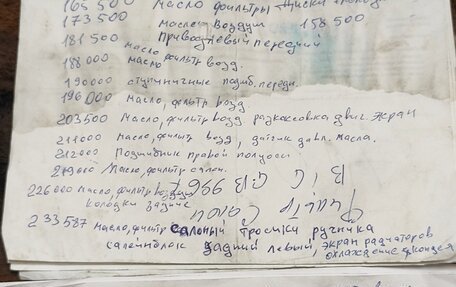 165 500 масло фильтры Диски
173 500 масло воздуш 158 500
181 500 Привод левый передний
188 000 масло фильтр возд.
масло
190000 ступичничные подш. передн.
196 000 масло, фильтр возд
203500 Масло, фильтр возд раскоксовка двиг. экран
211000 масло, фильтр возд, датчик давл. масла.
212000 Подшибник правой полуоси
219000 Масло, фильтр салон.
226000 масло, фильтр воздуш
колодки задние
233587 масло, фильтр салоный тросики ручника
калейнблок задний левый, экран радиаторов
охлаждение